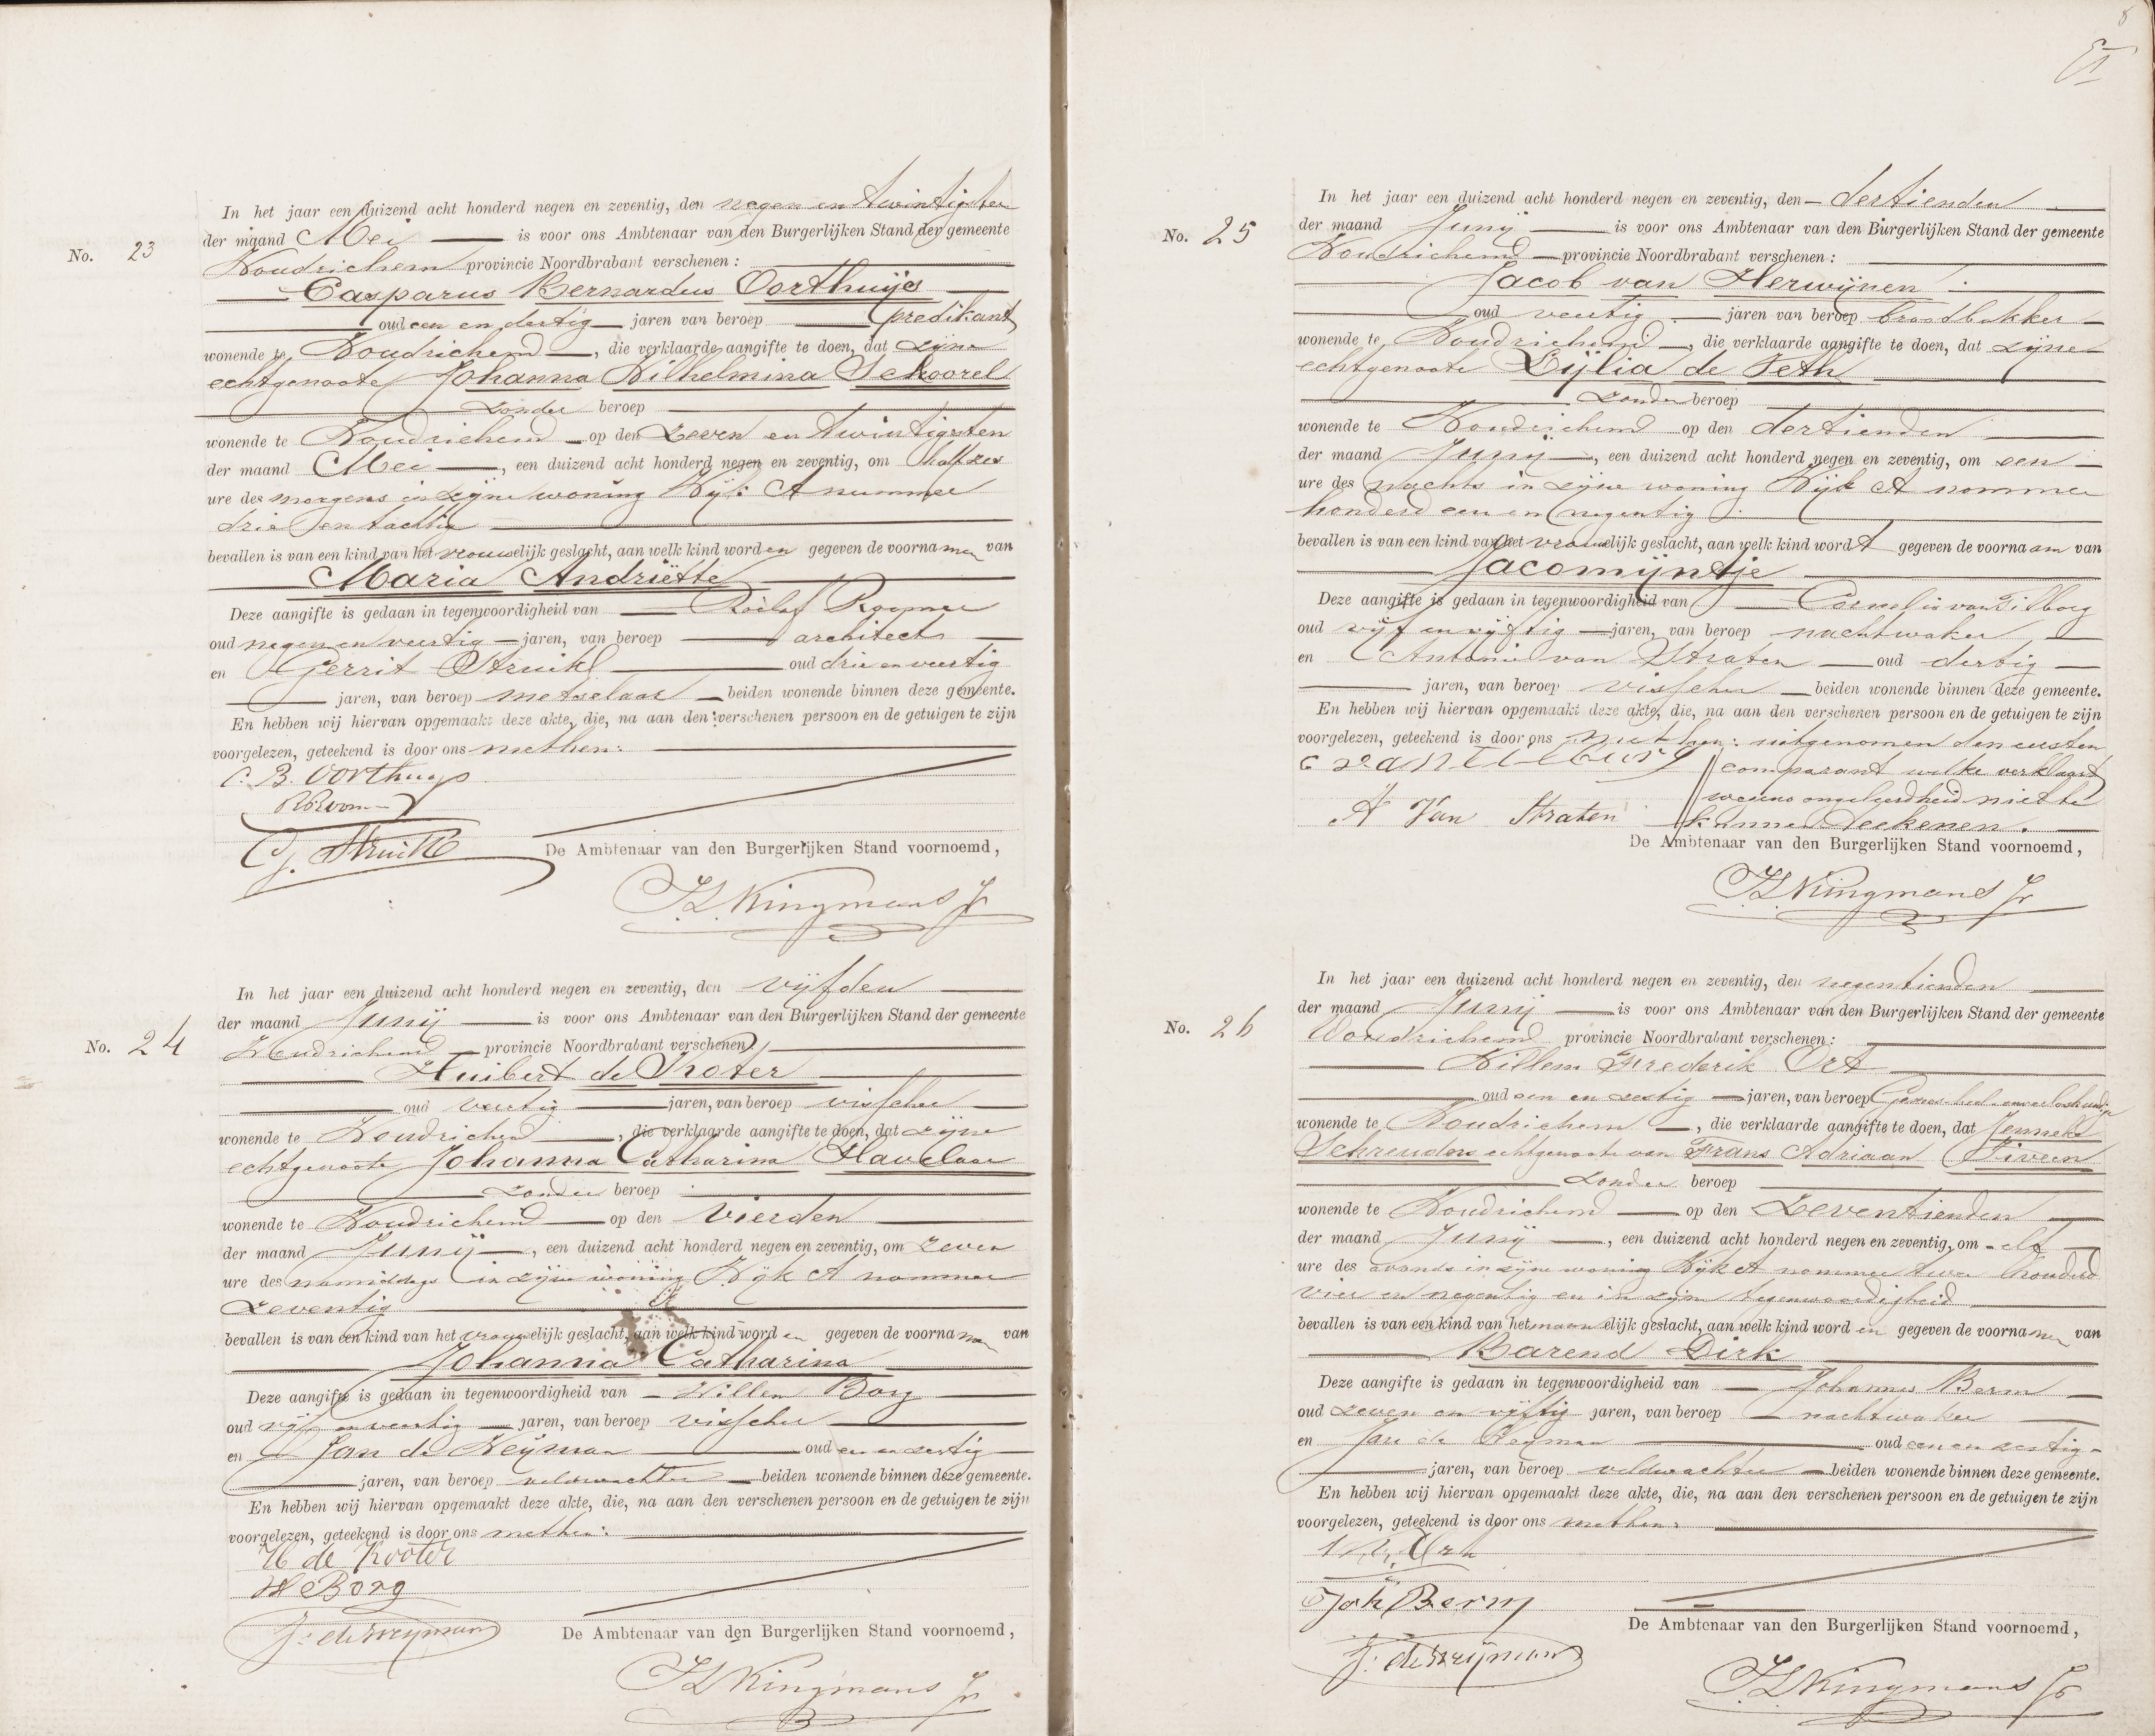 In het jaar een duizend acht honderd negen en zeventig, den negen en twintigsten
der maand Mei is voor ons Ambtenaar van den Burgerlijken Stand der gemeente
No. 23
Woudrichem provincie Noordbrabant verschenen:
Casparus Bernardus Oorthuijs
oud een en dertig jaren van beroep predikant
wonende te Woudrichem, die verklaarde aangifte te doen, dat zijne
echtgenoote Johanna Wilhelmina Schoorel
zonder beroep
wonende te Woudrichem op den zeven en twintigsten
der maand Mei, een duizend acht honderd negen en zeventig, om half zes
ure des morgens in zijne woning Wijk A nummer
drie en tachtig
bevallen is van een kind van het vrouwelijk geslacht, aan welk kind worden gegeven de voornamen van
Maria Andriëtte
Deze aangifte is gedaan in tegenwoordigheid van Roelof
oud negen en veertig jaren, van beroep architect
en Gerrit Struik oud drie en veertig
jaren, van beroep metselaar beiden wonende binnen deze gemeente.
En hebben wij hiervan opgemaakt deze akte, die, na aan den verschenen persoon en de getuigen te zijn
voorgelezen, geteekend is door ons met hen:
C. B. Oorthuys
G. Struik
De Ambtenaar van den Burgerlijken Stand voornoemd,
Kingmans Jr
In het jaar een duizend acht honderd negen en zeventig, den vijfden
der maand Junij is voor ons Ambtenaar van den Burgerlijken Stand der gemeente
No. 24
Woudrichem provincie Noordbrabant verschenen:
Huibert de Koter
oud veertig jaren, van beroep visscher
wonende te Woudrichem, die verklaarde aangifte te doen, dat zijne
echtgenoote Johanna Catharina Havelaar
zonder beroep
wonende te Woudrichem op den vierden
der maand Junij, een duizend acht honderd negen en zeventig, om zeven
ure des namiddags in zijne woning Wijk A nommer
zeventig
bevallen is van een kind van het vrouwelijk geslacht, aan welk kind worden gegeven de voornamen van
Johanna Catharina
Deze aangifte is gedaan in tegenwoordigheid van Willem Borg
oud vijf en veertig jaren, van beroep visscher
en Jan de Weijman oud een en zestig
jaren, van beroep veldwachter beiden wonende binnen deze gemeente.
En hebben wij hiervan opgemaakt deze akte, die, na aan den verschenen persoon en de getuigen te zijn
voorgelezen, geteekend is door ons met hen:
H de Kooter
W Borg
J: de Weijman
De Ambtenaar van den Burgerlijken Stand voornoemd,
Kingmans Jr
In het jaar een duizend acht honderd negen en zeventig, den dertienden
der maand Junij is voor ons Ambtenaar van den Burgerlijken Stand der gemeente
No. 25
Woudrichem provincie Noordbrabant verschenen:
Jacob van Herwijnen
oud veertig jaren van beroep broodbakker
wonende te Woudrichem, die verklaarde aangifte te doen, dat zijne
echtgenoote Dijlia de Feth
zonder beroep
wonende te Woudrichem op den dertienden
der maand Junij, een duizend acht honderd negen en zeventig, om een
ure des nachts in zijne woning Wijk A nommer
honderd een en negentig
bevallen is van een kind van het vrouwelijk geslacht, aan welk kind wordt gegeven de voornaam van
Jacomijntje
Deze aangifte is gedaan in tegenwoordigheid van Cornelis van Tilborg
oud vijf en vijftig jaren, van beroep nachtwaker
en Antonie van Straten oud dertig
jaren, van beroep visscher beiden wonende binnen deze gemeente.
En hebben wij hiervan opgemaakt deze akte, die, na aan den verschenen persoon en de getuigen te zijn
voorgelezen, geteekend is door ons met hen: uitgenomen den eersten
comparant welke verklaart
wegens ongeleerdheid niet te
kunnen teekenen.
A Van Straten
De Ambtenaar van den Burgerlijken Stand voornoemd,
Kingmans Jr
In het jaar een duizend acht honderd negen en zeventig, den negentienden
der maand Junij is voor ons Ambtenaar van den Burgerlijken Stand der gemeente
No. 26
Woudrichem provincie Noordbrabant verschenen:
Willem Frederik Ort
oud een en zestig jaren, van beroep
wonende te Woudrichem, die verklaarde aangifte te doen, dat Jenneke
Schreuders echtgenoote van Frans Adriaan Viveen
zonder beroep
wonende te Woudrichem op den zeventienden
der maand Junij, een duizend acht honderd negen en zeventig, om elf
ure des avonds in zijne woning Wijk A nommer twee honderd
vier en negentig en in zijne tegenwoordigheid
bevallen is van een kind van het mannelijk geslacht, aan welk kind worden gegeven de voornamen van
Barend Dirk
Deze aangifte is gedaan in tegenwoordigheid van Johannes Berm
oud zeven en vijftig jaren, van beroep nachtwaker
en Jan de Weyman oud een en zestig
jaren, van beroep veldwachter beiden wonende binnen deze gemeente.
En hebben wij hiervan opgemaakt deze akte, die, na aan den verschenen persoon en de getuigen te zijn
voorgelezen, geteekend is door ons met hen:
Joh Berm
J: de Weijman
De Ambtenaar van den Burgerlijken Stand voornoemd,
Kingmans Jr